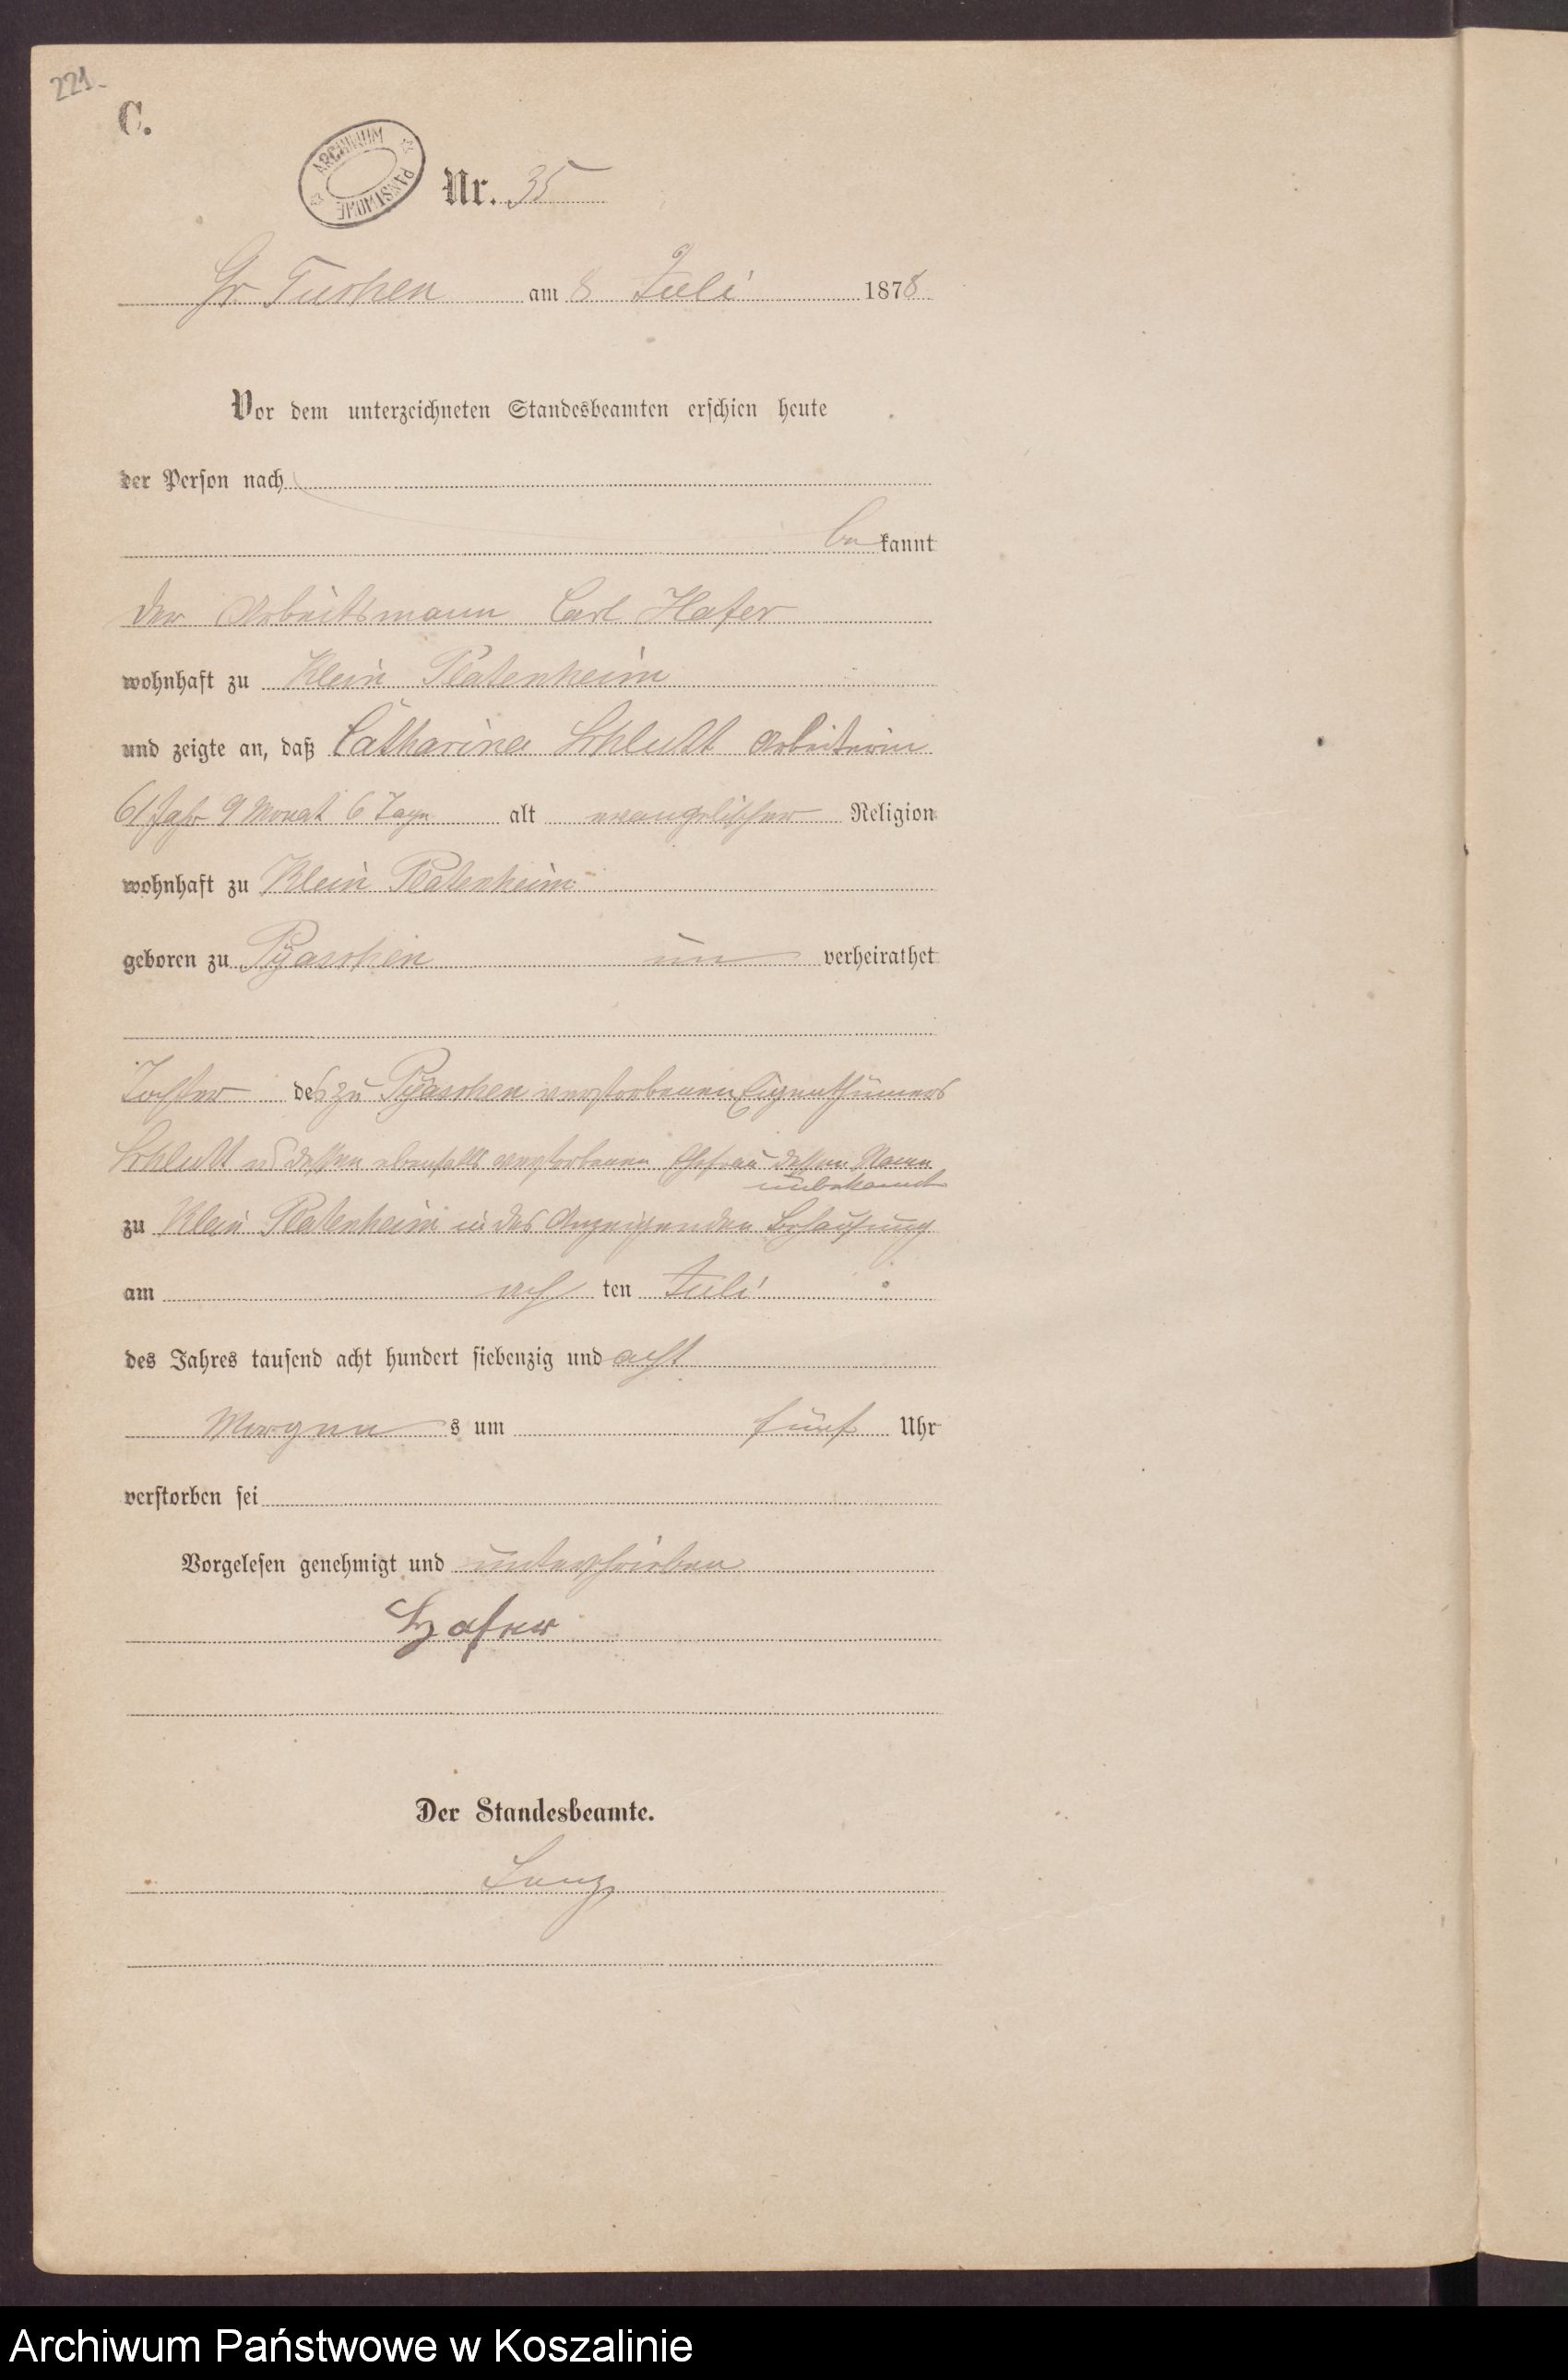 221.
C.
ARCHIWUM PAŃSTWOWE
Nr. 35
Gr Tuchen am 8 Juli 1878
Vor dem unterzeichneten Standesbeamten erschien heute
der Person nach
be kannt
der Arbeitsmann Carl Hafer
wohnhaft zu Klein Platenheim
und zeigte an, daß Catharina Schlutt Arbeiterin
61 Jahr 9 Monat 6 Tage alt evangelischer Religion
wohnhaft zu Klein Platenheim
geboren zu Pyaschen un verheirathet
Tochter des zu Pyaschen verstorbenen Eigenthümers
Schlutt u dessen ebenfalls verstorbenen Ehefrau dessen Name
unbekannt
zu Klein Platenheim in des Anzeigenden Behausung
am ach ten Juli
des Jahres tausend acht hundert siebenzig und acht
Morgen s um fünf Uhr
verstorben sei
Vorgelesen genehmigt und unterschrieben
Hafer
Der Standesbeamte.
Archiwum Państwowe w Koszalinie